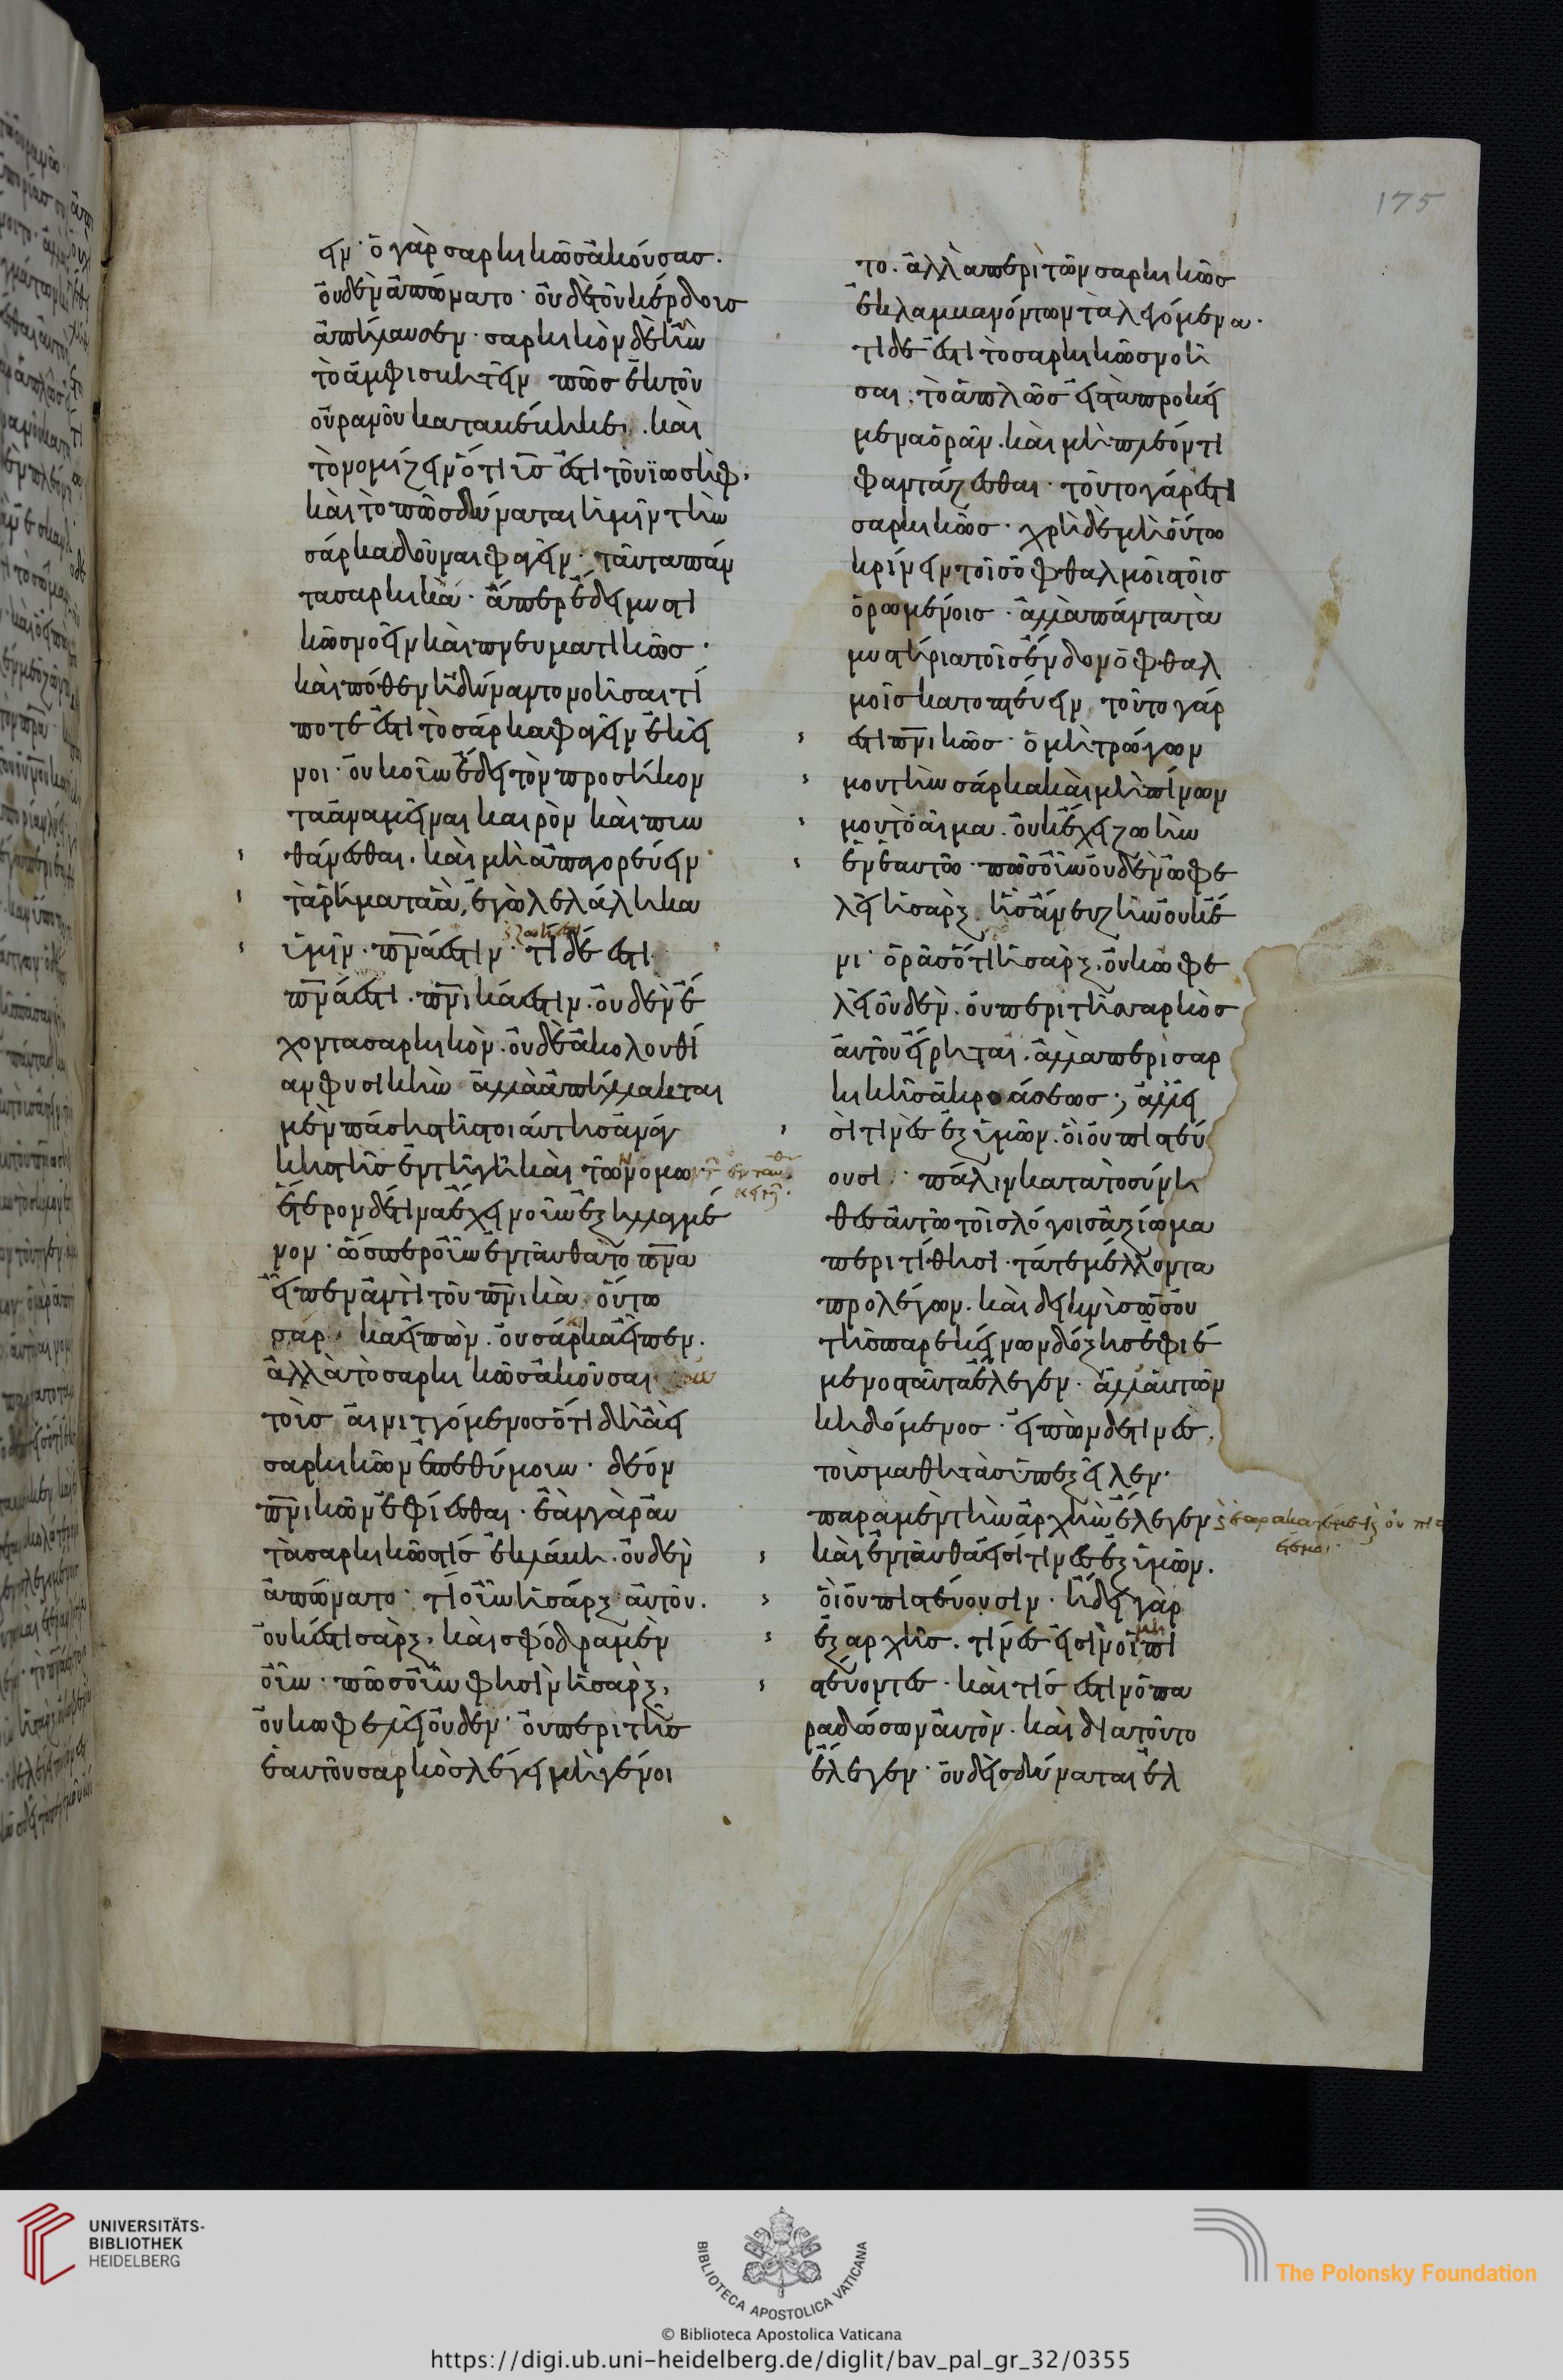 ειν· ὁ γὰρ σαρκικῶς ἀκούσας.
οὐδὲν ἀπώνατο· οὐδὲ τοῦ κέρδους
ἀπήλαυσεν· σαρκικὸν δὲ ἦν
τὸ ἀμφισβητεῖν πῶς ἐκ τοῦ
οὐρανοῦ καταβέβηκε· καὶ
τὸ νομίζειν ὅτι υς ἐστι τοῦ ϊωσήφ·
καὶ τὸ πῶς δύναται ἡμῖν τὴν
σάρκα δοῦναι φαγεῖν· ταῦτα πάν
τα σαρκικά· ἅπερ ἔδει μυστι
κῶς νοεῖν καὶ πνευματικῶς·
καὶ πόθεν ἠδύναντο νοῆσαι τί
ποτε ἐστὶ τὸ σάρκα φαγεῖν ἐκεῖ
νοι· οὐκοῦν ἔδει τὸν προσήκον
τα ἀναμεῖναι καιρὸν καὶ πυν
θάνεσθαι· καὶ μὴ ἀπαγορεύειν·
τὰ ῥήματα ἃ ἐγὼ λελάληκα
ὑμῖν· πνά ἐστιν· τί δέ ἐστι
πνά ἐστι· πνικά ἐστιν· οὐδὲν ἔ
χοντα σαρκικὸν· οὐδὲ ἀκολουθί
αν φυσικὴν ἀλλὰ ἀπήλλακται
μὲν πάσης τῆς τοιαύτης ἀνάγ
κης τῆς ἐν τῆ γῆ καὶ τῶν νόμων
ἕτερον δέ τινα ἔχει νοῦν ἐξηλλαγμέ
νον· ὥσπερ οὖν ἐνταῦθα τὸ πνα
εἶπεν ἀντὶ τοῦ πνικὰ οὕτω
σάρκα εἰπὼν· οὐ σάρκα εἶπεν·
ἀλλὰ τὸ σαρκικῶς ἀκοῦσαι
τοὺς αἰνιττόμενος ὅτι δὴ ἀεὶ
σαρκικῶν ἐπεθύμουν· δεόν
πνικῶν ἐφίεσθαι· ἐὰν γὰρ ἂν
τὰ σαρκικῶς τίς ἐκλάβη· οὐδὲν
ἀπώνατο· τί οὖν ἡ σάρξ αὐτοῦ·
οὐκ ἔστι σάρξ· καὶ σφόδρα μὲν
οὖν· πῶς οὖν φησὶν ἡ σάρξ·
οὐκ ὠφελεῖ οὐδέν· οὐ περὶ τῆς
ἑαυτοῦ σαρκὸς λέγει μὴ γένοι
το· ἀλλὰ περὶ τῶν σαρκικῶς
ἐκλαμβανόντων τὰ λεγόμενα·
τί δε ἐστὶ τὸ σαρκικῶς νοῆ
σαι; τὸ ἁπλῶς εἰς τὰ προκεί
μενα ὁρᾶν· καὶ μὴ πλέόν τι
φαντάζεσθαι· τοῦτο γάρ ἐστι
σαρκικῶς· χρὴ δὲ μὴ οὕτω
κρίνειν τοῖς ὀφθαλμοῖς τοῖς
ὁρωμένοις· ἀλλὰ πάντα τὰ
μυστήρια τοῖς ἔνδον ὀφθαλ
μοῖς κατοπτεύειν τοῦτο γάρ
ἐστι πνικῶς· ὁ μὴ τρώγων
μου τὴν σάρκα καὶ μὴ πίνων
μου τὸ αἷμα· οὐκ ἔχει ζωὴν
ἐν ἑαυτῶ· πῶς οὖν οὐδὲν ὠφε
λεῖ ἡ σάρξ· ἧς ἄνευ ζῆν οὐκ ἔ
νι· ὁρᾶς ὅτι ἡ σάρξ· οὐκ ὠφε
λεῖ οὐδέν· οὐ περὶ τῆς σαρκὸς
αὐτοῦ εἴρηται· ἀλλὰ περὶ σαρ
κικῆς ἀκροάσεως; ἀλλ εἰ
σὶ τινὲς ἐξ ὑμῶν· οἳ οὐ πιστεύ
ουσι· πάλιν κατὰ τὸ σύνη
θες αὐτῶ τοῖς λόγοις ἀξίωμα
περιτίθησι· τά τε μέλλοντα
προλέγων· καὶ δεικνὺς ὡς οὐ
τῆς παρ ἐκείνων δόξης ἐφιέ
μενος ταῦτα ἔλεγεν· ἀλλ αὐτῶν
κηδόμενος· εἰπὼν δὲ τινὲς,
τοὺς μαθητὰς ὑπεξεῖλεν·
παρὰ μὲν τὴν ἀρχὴν ἔλεγεν
καὶ ἐνταῦθα εἰσί τινες ἐξ ὑμῶν.
οἳ οὐ πιστεύουσιν· ἤδει γὰρ
ἐξ αρχῆς· τίνες εἰσὶν οἱ μὴ πι
στεύοντες· καὶ τίς ἐστιν ὁ πα
ραδώσων αὐτόν· καὶ διατοῦτο
ἔλεγεν· οὐδεὶς δύναται ἐλ
175
UNIVERSITÄTS-
BIBLIOTHEK
HEIDELBERG
BIBLIOTECA APOSTOLICA VATICANA
The Polonsky Foundation
© Biblioteca Apostolica Vaticana
https://digi.ub.uni-heidelberg.de/diglit/bav_pal_gr_32/0355